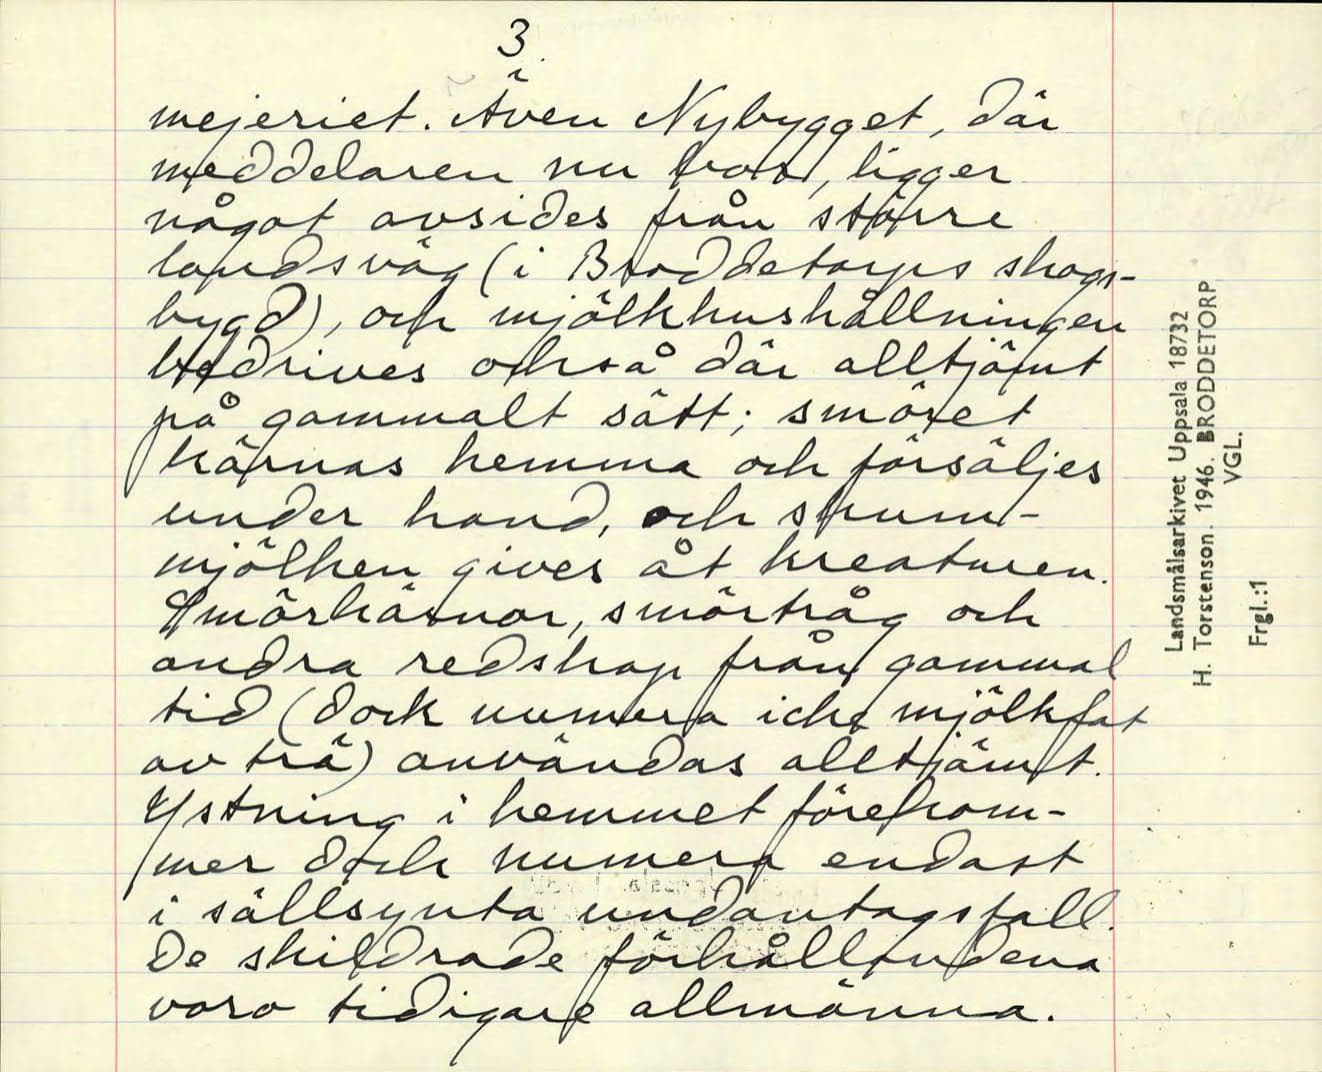 3
mejeriet. Även Nybygget, där
meddelaren nu bor, ligger
något avsides från större
landsväg (i Broddetorps skogs-
bygd), och mjölkhushållningen
bedrives också där alltjämt
på gammalt sätt; smöret
kärnas hemma och försäljes
under hand, och skum-
mjölken gives åt kreaturen.
Smörkärnor, smörtråg och
andra redskap från gammal
tid (dock numera icke mjölkfat
av trä) användas alltjämt.
Ystning i hemmet förekom-
mer dock numera endast
i sällsynta undantagsfall.
De skildrade förhållandena
voro tidigare allmänna.
Landsmålsarkivet Uppsala 18732
H. Torstenson. 1946. BRODDETORP
VGL.
Frgl.:1